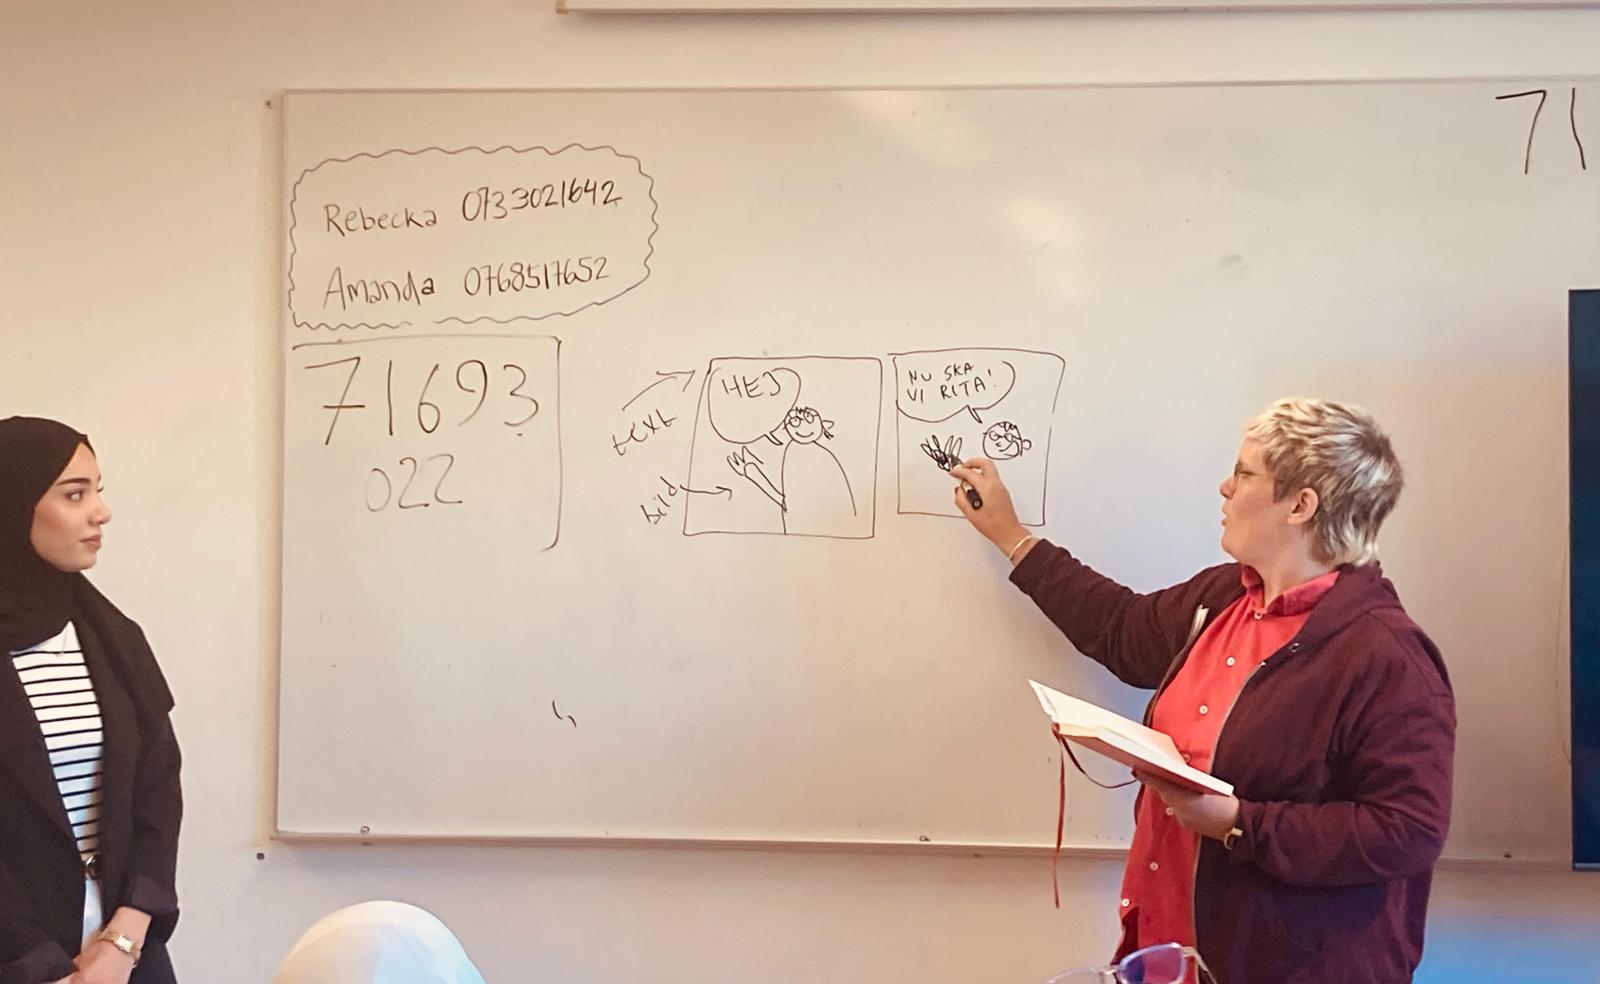 71
Rebecka 0733021642
Amanda 0768517652
71693
022
text
bild
HEJ
NU SKA
VI RITA!